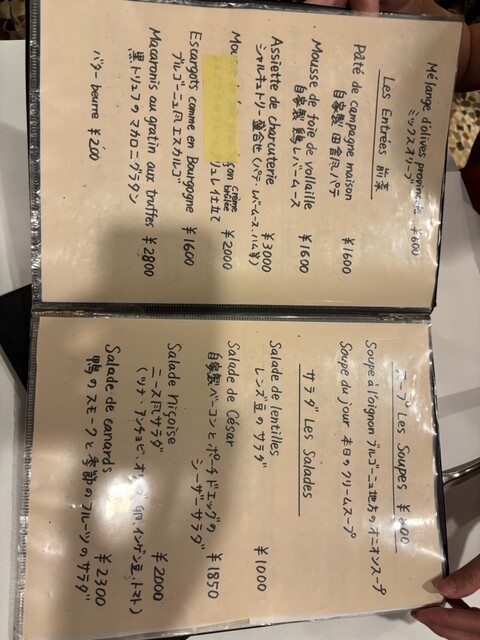 Mélange d'olives provençale ¥600
ミックスオリーブ
Les Entrées 前菜
Pâté de campagne maison ¥1600
自家製 田舎風パテ
Mousse de foie de volaille ¥1600
自家製 鶏レバームース
Assiette de charcuterie ¥3000
シャルキュトリー盛合せ(パテ、レバームース、ハム等)
crème
brûlée ¥2000
ュレ仕立て
Escargots comme en Bourgogne ¥1600
ブルゴーニュ風エスカルゴ
Macaronis au gratin aux truffes ¥2800
黒トリュフのマカロニグラタン
バター beurre ¥200
スープ Les Soupes
Soupe à l'oignon ブルゴーニュ地方のオニオンスープ
Soupe du jour 本日のクリームスープ
サラダ Les Salades
Salade de lentilles ¥1000
レンズ豆のサラダ
Salade de César ¥1850
自家製ベーコンとポーチドエッグの
シーザーサラダ
Salade niçoise ¥2000
ニース風サラダ
(ツナ・アンチョビ・オリーブ・卵・インゲン豆・トマト)
Salade de canards ¥2300
鴨のスモークと季節のフルーツのサラダ